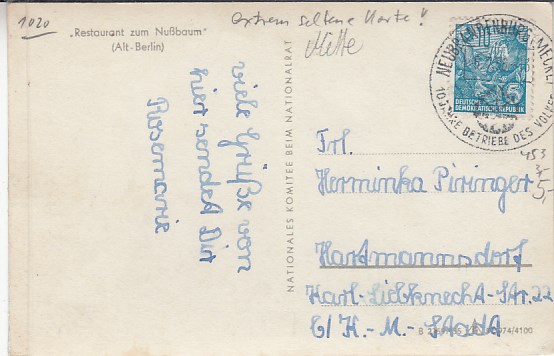 1020
extrem seltene Karte!
Mitte
„Restaurant zum Nußbaum"
(Alt-Berlin)
viele Grüße von
hier sendet Dir
Rosemarie
NATIONALES KOMITEE BEIM NATIONALRAT
NEUBRANDENBURG (MECKL
10 JAHRE BETRIEBE DES VOLK
DEUTSCHE
DEMOKRATISCHE REPUBLIK
5
453
5,
Frl.
Herminka Piringer
Hartmannsdorf
Karl-Liebknecht-Str. 22
b/ K.-M.-Stadt
974/4100